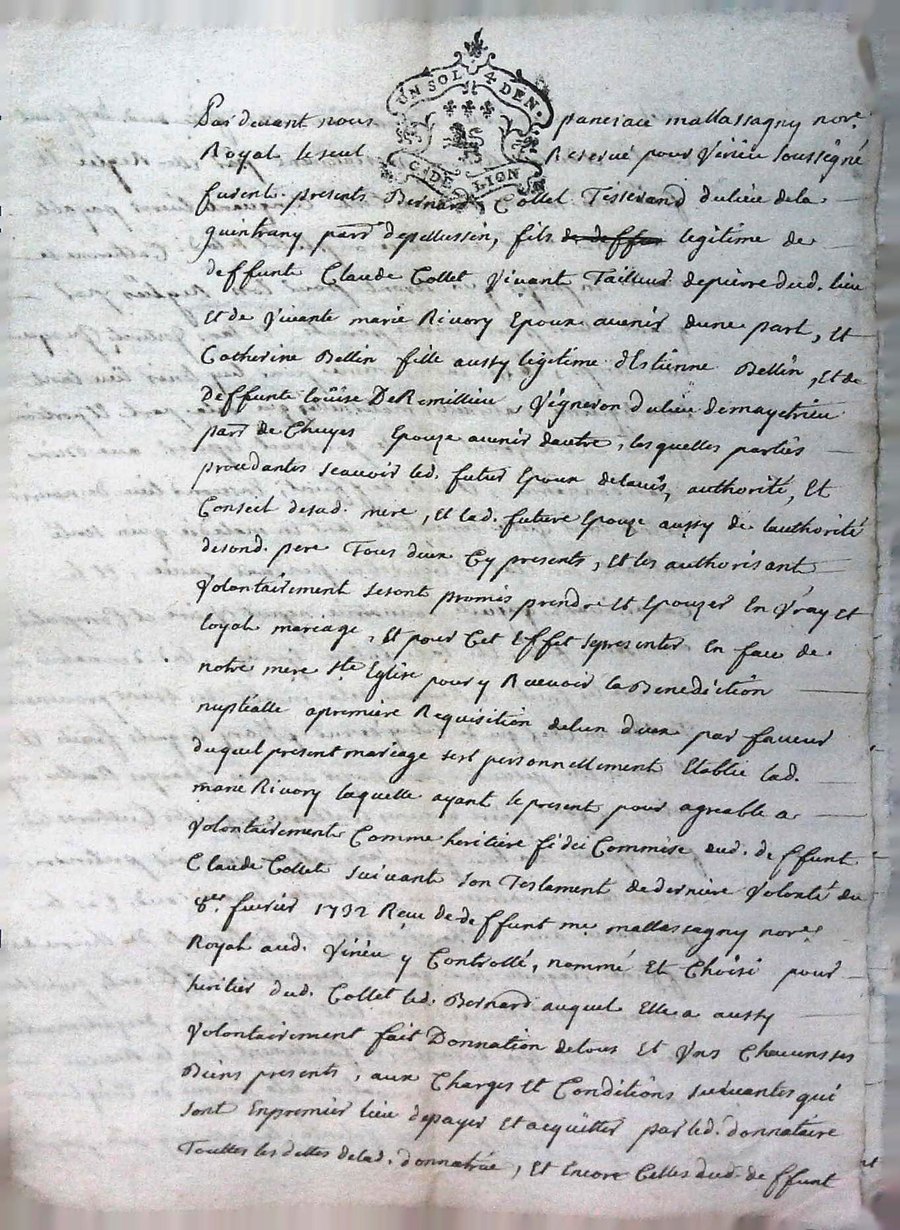 UN SOL 4 DEN.
G. DE LION
Par devant nous pancrace mallassagny nore.
Royal le seul Reservé pour Virieu soussigné
furent presents Bernard Collet Tisserand du lieu de la
quintrany parr. de pellussin, fils de deffun legitime de
deffunt Claude Collet Vivant Tailleur de pierre dud. lieu
et de Vivante marie Rivory Epoux avenir dune part, Et
Catherine Bellin fille aussy legitime dEstienne Bellin, Et de
deffunte Louïse DeRemillieu, Vigneron du lieu de mayetrieu
parr. de Chuyes Epouze avenir dautre, lesquelles parties
procedantes scavoir led. futur Epoux de lavis, authorité, Et
Conseil de sad. mere, Et lad. future Epouze aussy de lauthorité
de sond. pere Tous deux Cy presents, Et les authorisant
Volontairement se sont promis prendre Et Epouzer En Vray Et
loyal mariage, Et pour Cet Effet se presenter En face de
notre mere Ste Eglise pour y Recevoir la Benediction
nuptialle a premiere Requisition de lun deux par faveur
duquel present mariage sest personnellement Etablie lad.
marie Rivory laquelle ayant le present pour agreable a
Volontairement Comme heritiere fideï Commise dud. deffunt
Claude Collet suivant son Testament de derniere Volonté du
8er. fevrier 1732 Recu de deffunt me mallassagny nore.
Royal aud. Virieu y Controllé, nommé Et Choisi pour
heritier dud. Collet led. Bernard auquel Elle a aussy
Volontairement fait Donnation de tous Et Uns Chacuns ses
Biens presents, aux Charges Et Conditions suivantes qui
sont En premier lieu de payer Et acquitter par led. donnataire
Touttes les dettes de lad. donnatrice, Et Encore Celles dud. deffunt